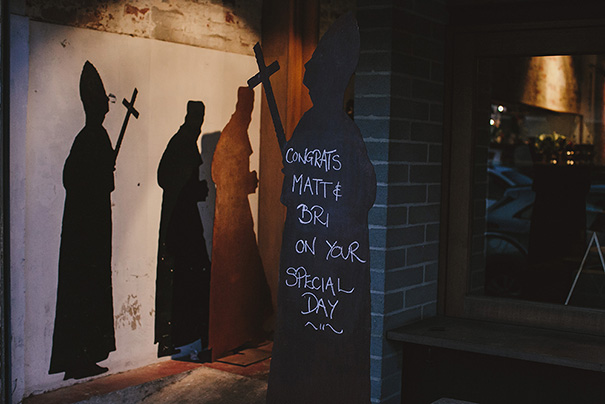 CONGRATS
MATT &
BRI
ON YOUR
SPECIAL
DAY